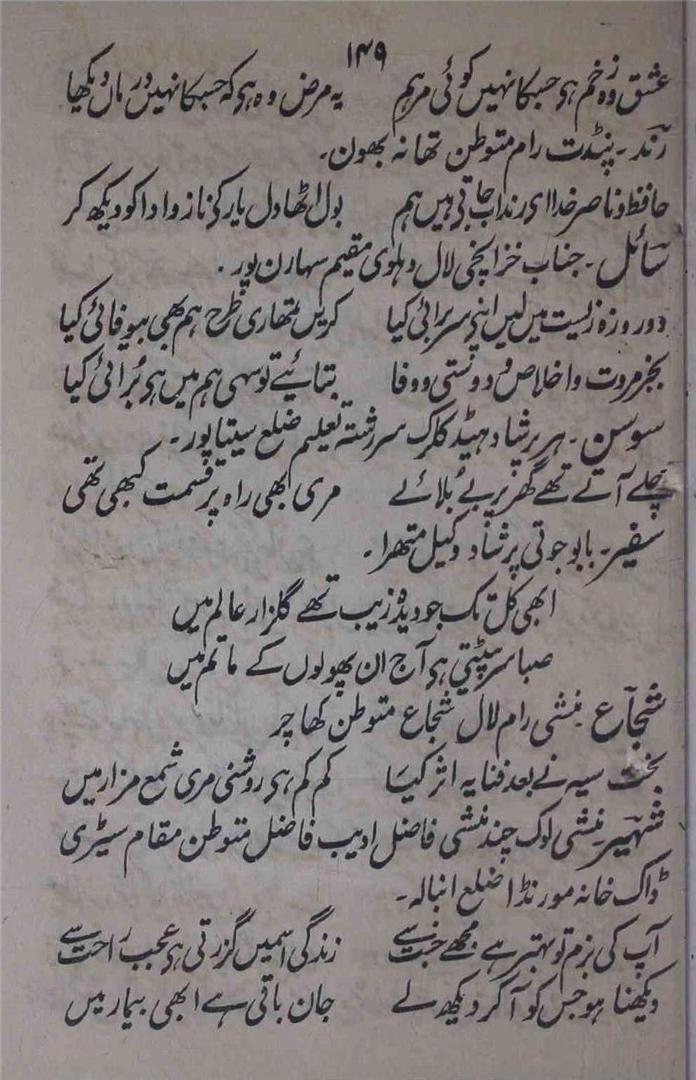 ۱۴۹
عشق وہ زخم ہو جسکا نہیں کوئی مرہم یہ مرض وہ ہو کہ جسکا نہیں درماں دیکھا
رند۔ پنڈت رام متوطن تھانہ بھون۔
حافظ و ناصر خدا ای رند اب جاتی ہیں ہم بول اٹھا دل یار کی ناز و ادا کو دیکھ کر
سائل۔ جناب خزانچی لال دہلوی مقیم سہارن پور۔
دو روزہ زیست میں لیں اپنی سر برائی کیا کریں تمھاری طرح ہم بھی بیوفائی کیا
بجز مروت و اخلاص و دوستی و وفا بتائیے تو سہی ہم میں ہی برائی کیا
سوسن۔ ہر پرشاد ہیڈ کلرک سررشتہ تعلیم ضلع سیتاپور۔
چلے آتے تھے گھر پر بے بلائے مری بھی راہ پر قسمت کبھی تھی
سفیر۔ بابو جوتی پرشاد وکیل متھرا۔
ابھی کل تک جو دیدہ زیب تھے گلزار عالم میں
صبا سر پیٹتی ہی آج ان پھولوں کے ماتم میں
شجاع منشی رام لال شجاع متوطن کھاچر
بخت سیہ نے بعد فنا یہ اثر کیا کم کم ہی روشنی مری شمع مزار میں
شہیر۔ منشی لوک چند منشی فاضل ادیب فاضل متوطن مقام سیڑی
ڈاک خانہ مورنڈا ضلع انبالہ۔
آپ کی بزم تو بہتر ہے مجھے جنت سے زندگی اسمیں گزرتی ہی عجب راحت سے
دیکھنا ہو جس کو آکر دیکھ لے جان باقی ہے ابھی بیمار میں